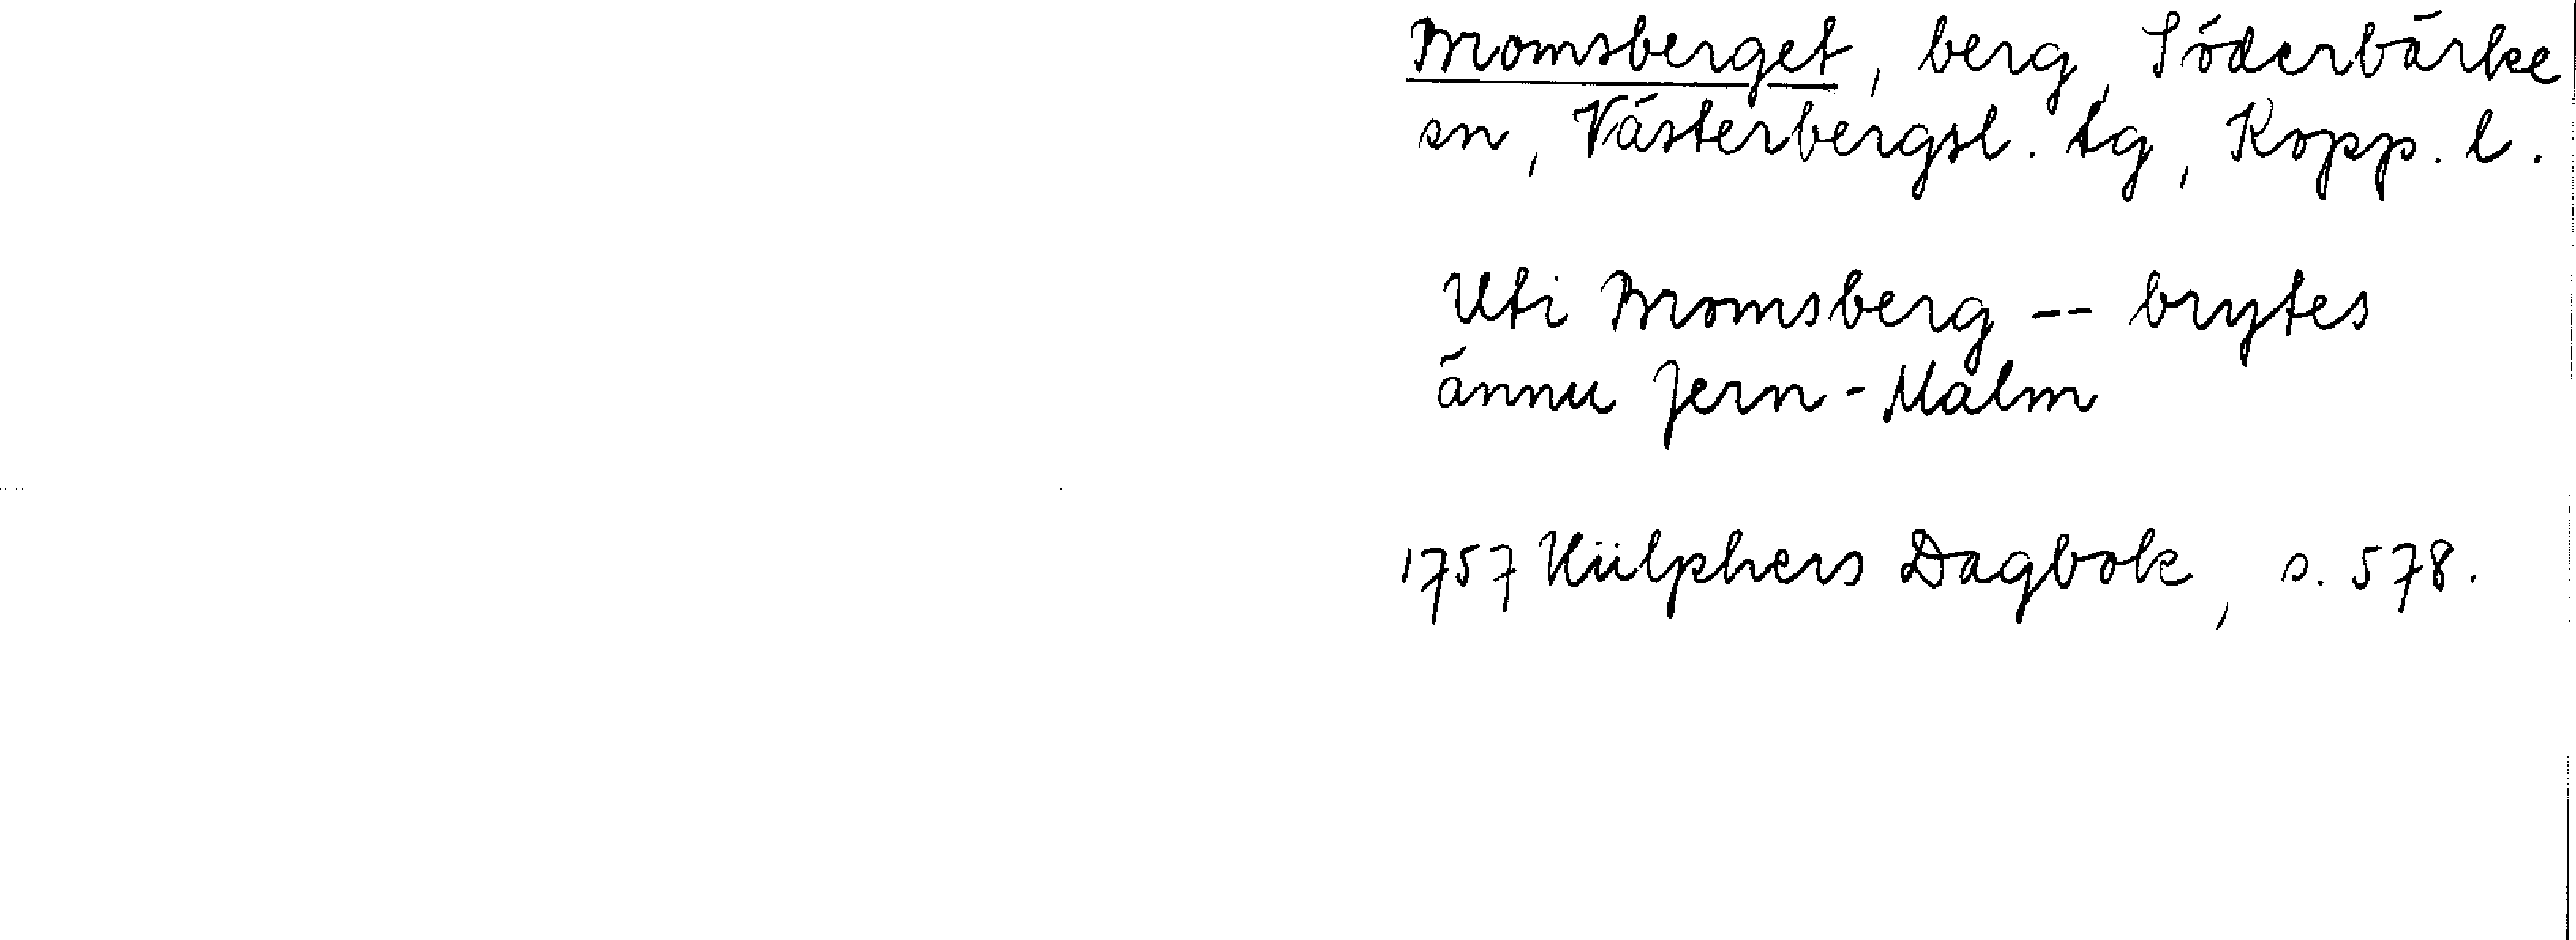 Bromsberget, berg, Söderbärke
sn, Västerbergsl. tg, Kopp. l.
Uti Bromsberg -- brytes
ännu Jern-Malm
1757 Hülphers Dagbok, s. 578.